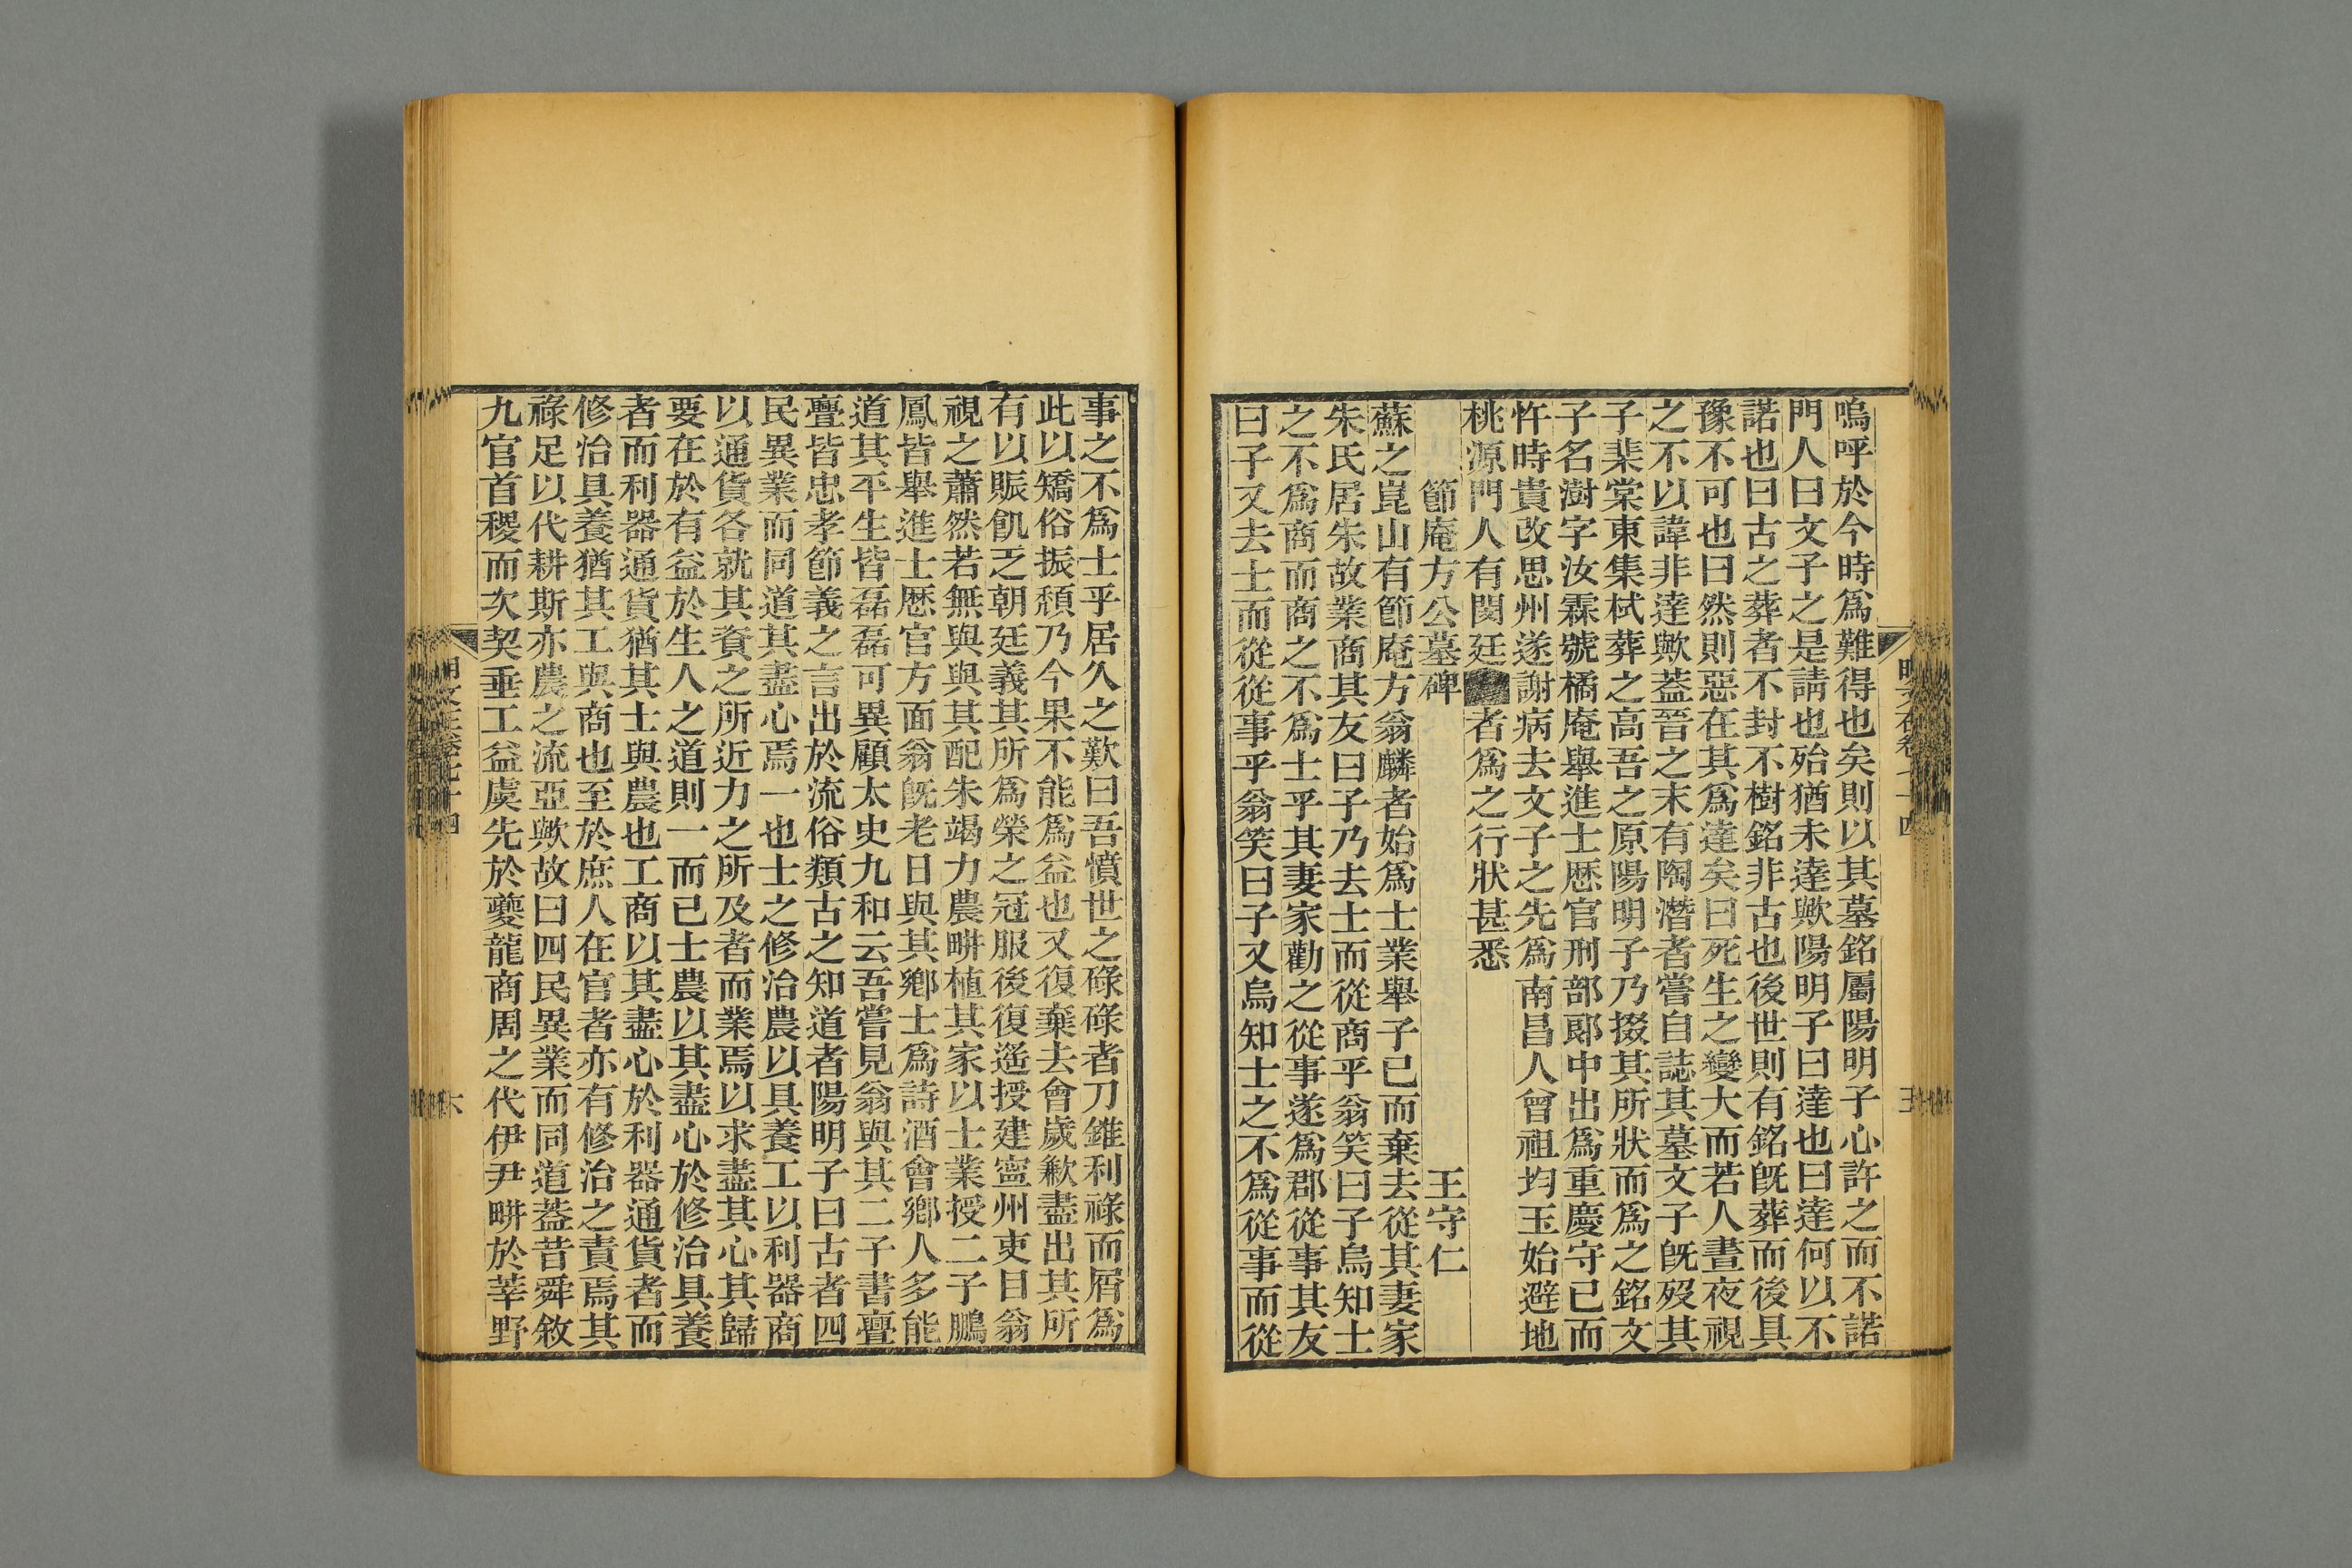 嗚呼於今時爲難得也矣則以其墓銘屬陽明子心許之而不諾
門人曰文子之是請也殆猶未達歟陽明子曰達也曰達何以不
諾也曰古之葬者不封不樹銘非古也後世則有銘旣葬而後具
豫不可也曰然則惡在其爲達矣曰死生之變大而若人晝夜視
之不以諱非達歟葢晉之末有陶潛者嘗自誌其墓文子旣歿其
子棐棠東集栻葬之高吾之原陽明子乃掇其所狀而爲之銘文
子名澍字汝霖號橘庵舉進士歷官刑部郞中出爲重慶守已而
忤時貴改思州遂謝病去文子之先爲南昌人曾祖均玉始避地
桃源門人有閔廷者爲之行狀甚悉
節庵方公墓碑　王守仁
蘇之崑山有節庵方翁麟者始爲士業舉子已而棄去從其妻家
朱氏居朱故業商其友曰子乃去士而從商乎翁笑曰子烏知士
之不爲商而商之不爲士乎其妻家勸之從事遂爲郡從事其友
曰子又去士而從從事乎翁笑曰子又烏知士之不爲從事而從
明文在卷七十四
五
事之不爲士乎居久之歎曰吾憤世之碌碌者刀錐利祿而屑爲
此以矯俗振頹乃今果不能爲益也又復棄去會歲歉盡出其所
有以賑飢乏朝廷義其所爲榮之冠服後復遙授建寧州吏目翁
視之蕭然若無與與其配朱竭力農畊植其家以士業授二子鵬
鳳皆舉進士歷官方面翁旣老日與其鄉士爲詩酒會鄉人多能
道其平生皆磊磊可異顧太史九和云吾嘗見翁與其二子書亹
亹皆忠孝節義之言出於流俗類古之知道者陽明子曰古者四
民異業而同道其盡心焉一也士之修治農以具養工以利器商
以通貨各就其資之所近力之所及者而業焉以求盡其心其歸
要在於有益於生人之道則一而已士農以其盡心於修治具養
者而利器通貨猶其士與農也工商以其盡心於利器通貨者而
修治具養猶其工與商也至於庶人在官者亦有修治之責焉其
祿足以代耕斯亦農之流亞歟故曰四民異業而同道葢昔舜敘
九官首稷而次契垂工益虞先於夔龍商周之代伊尹畊於莘野
明文在卷七十四
六